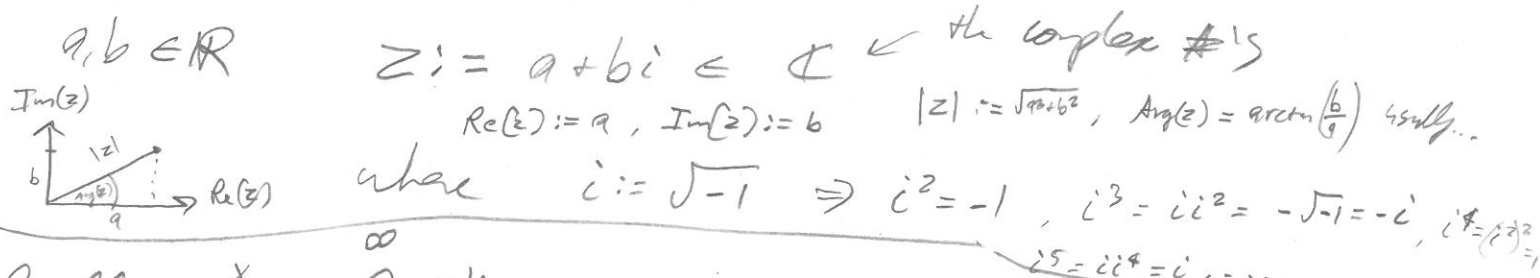 a,b ∈ ℝ    z := a + bi ∈ ℂ ← the complex #'s
Re(z) := a , Im(z) := b    |z| := √(a²+b²) , Arg(z) = arctan(b/a) usually...
Im(z)
|z|
b
Arg(z)
a
Re(z)
where i := √-1 ⇒ i² = -1 , i³ = ii² = -√-1 = -i , i⁴ = (i²)² =
∞
i⁵ = ii⁴ = i